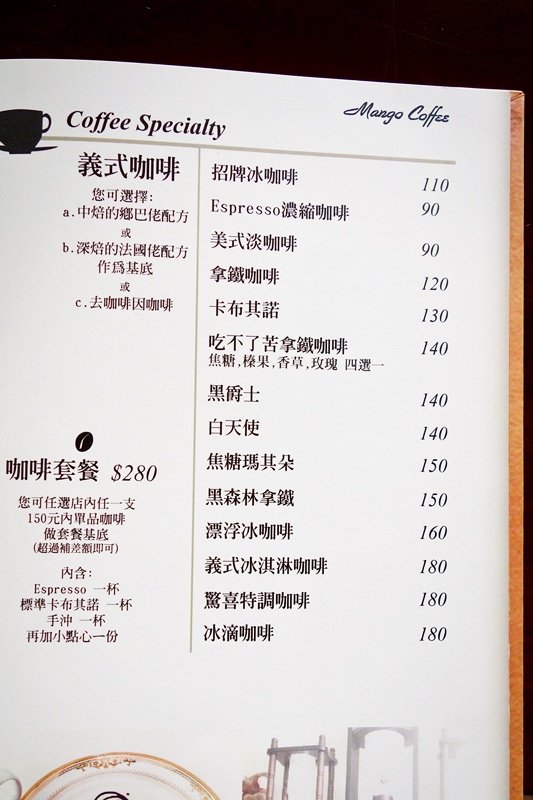 Mango Coffee
Coffee Specialty
義式咖啡
您可選擇:
a.中焙的鄉巴佬配方
或
b.深焙的法國佬配方
作為基底
或
c.去咖啡因咖啡
咖啡套餐 $280
您可任選店內任一支
150元內單品咖啡
做套餐基底
(超過補差額即可)
內含:
Espresso 一杯
標準卡布其諾 一杯
手沖 一杯
再加小點心一份
招牌冰咖啡 110
Espresso濃縮咖啡 90
美式淡咖啡 90
拿鐵咖啡 120
卡布其諾 130
吃不了苦拿鐵咖啡 140
焦糖,榛果,香草,玫瑰 四選一
黑爵士 140
白天使 140
焦糖瑪其朵 150
黑森林拿鐵 150
漂浮冰咖啡 160
義式冰淇淋咖啡 180
驚喜特調咖啡 180
冰滴咖啡 180